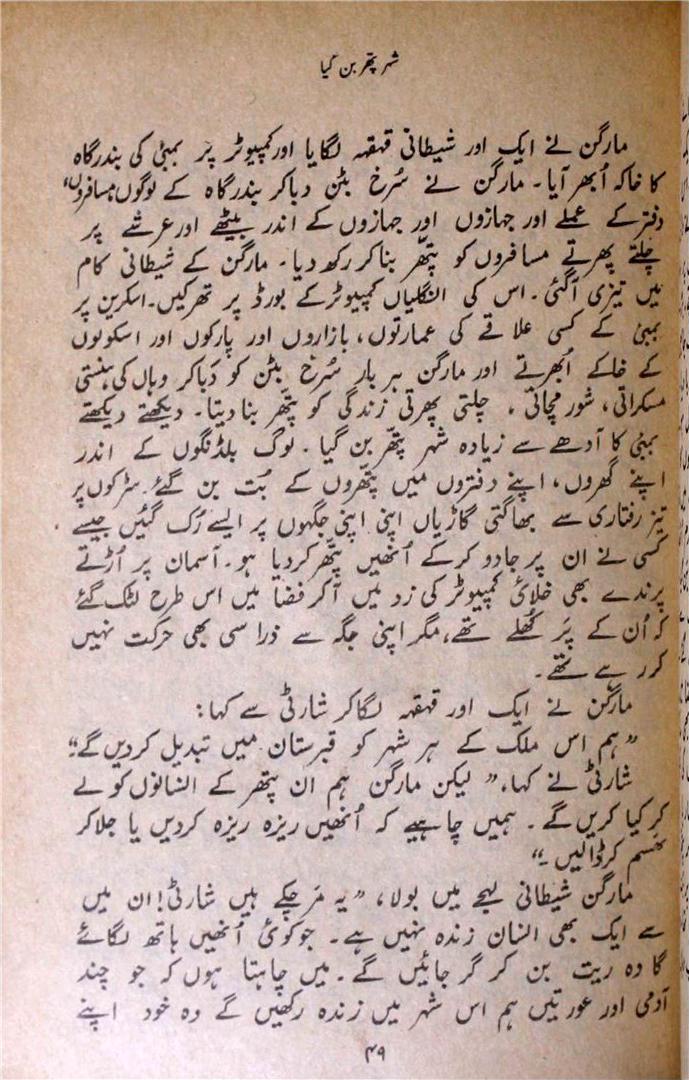 شہر پتھر بن گیا
مارگن نے ایک اور شیطانی قہقہہ لگایا اور کمپیوٹر پر بمبئی کی بندرگاہ
کا خاکہ اُبھر آیا۔ مارگن نے سُرخ بٹن دباکر بندرگاہ کے لوگوں، مسافروں،
دفتر کے عملے اور جہازوں اور جہازوں کے اندر بیٹھے اور عرشے پر
چلتے پھرتے مسافروں کو پتھّر بناکر رکھ دیا۔ مارگن کے شیطانی کام
میں تیزی آگئی۔ اس کی انگلیاں کمپیوٹر کے بورڈ پر تھرکیں۔ اسکرین پر
بمبئی کے کسی علاقے کی عمارتوں، بازاروں اور پارکوں اور اسکولوں
کے خاکے اُبھرتے اور مارگن ہر بار سُرخ بٹن کو دَباکر وہاں کی ہنستی
مسکراتی، شور مچاتی، چلتی پھرتی زندگی کو پتھّر بنا دیتا۔ دیکھتے دیکھتے
بمبئی کا آدھے سے زیادہ شہر پتھّر بن گیا۔ لوگ بلڈنگوں کے اندر
اپنے گھروں، اپنے دفتروں میں پتھّروں کے بُت بن گئے۔ سڑکوں پر
تیز رفتاری سے بھاگتی گاڑیاں اپنی اپنی جگہوں پر ایسے رُک گئیں جیسے
کسی نے ان پر جادو کرکے اُنھیں پتھّر کردیا ہو۔ آسمان پر اُڑتے
پرندے بھی خلائی کمپیوٹر کی زد میں آکر فضا میں اس طرح لٹک گئے
کہ اُن کے پَر کُھلے تھے، مگر اپنی جگہ سے ذرا سی بھی حرکت نہیں
کررہے تھے۔
مارگن نے ایک اور قہقہہ لگاکر شارٹی سے کہا:
”ہم اس ملک کے ہر شہر کو قبرستان میں تبدیل کردیں گے“
شارٹی نے کہا، ”لیکن مارگن ہم ان پتھر کے انسانوں کو لے
کر کیا کریں گے۔ ہمیں چاہیے کہ اُنھیں ریزہ ریزہ کردیں یا جلاکر
بھسم کرڈالیں۔“
مارگن شیطانی لہجے میں بولا، ”یہ مَر چکے ہیں شارٹی! ان میں
سے ایک بھی انسان زندہ نہیں ہے۔ جو کوئی اُنھیں ہاتھ لگائے
گا وہ ریت بن کر گر جائیں گے۔ میں چاہتا ہوں کہ جو چند
آدمی اور عورتیں ہم اس شہر میں زندہ رکھیں گے وہ خود اپنے
۴۹